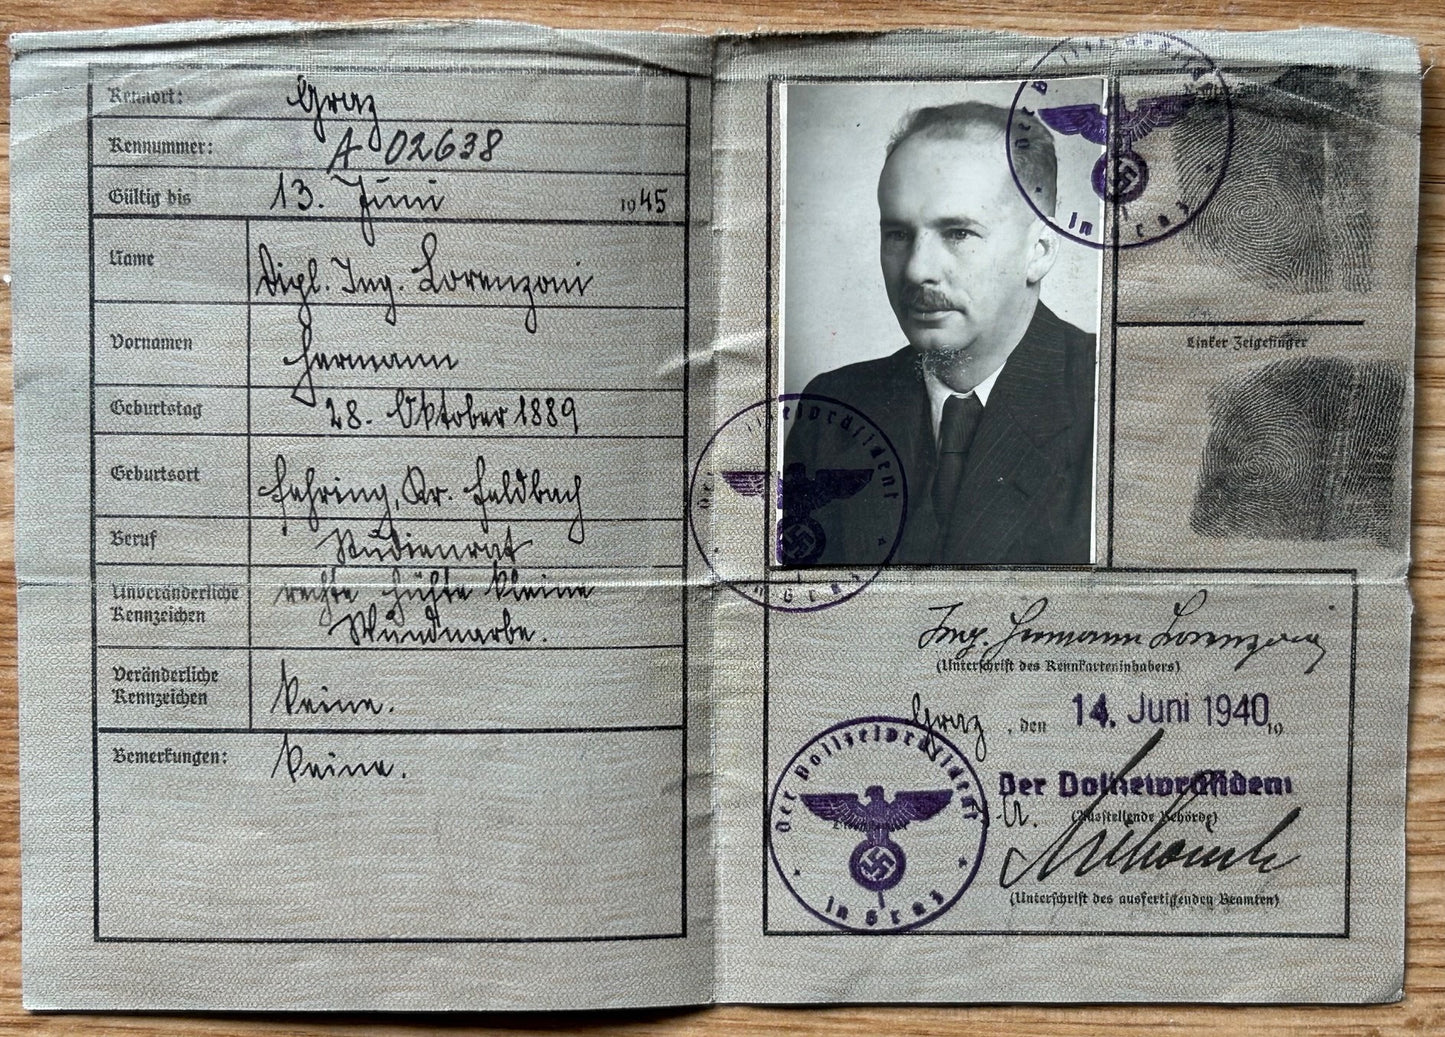 Kennort: Graz
Kennummer: A 02638
Gültig bis 13. Juni 1945
Name Dipl. Ing. Lorenzoni
Vornamen Hermann
Geburtstag 28. Oktober 1889
Geburtsort Fehring, Kr. Feldbach
Beruf Studienrat
Unveränderliche Kennzeichen rechte Hüfte kleine
Wundnarbe.
Veränderliche Kennzeichen keine.
Bemerkungen: keine.
Der Polizeipräsident
in Graz
Linker Zeigefinger
Der Polizeipräsident
in Graz
Ing. Hermann Lorenzoni
(Unterschrift des Kennkarteninhabers)
Graz, den 14. Juni 1940 19
Der Polizeipräsident
(Ausstellende Behörde)
Der Polizeipräsident
in Graz
(Unterschrift des ausfertigenden Beamten)